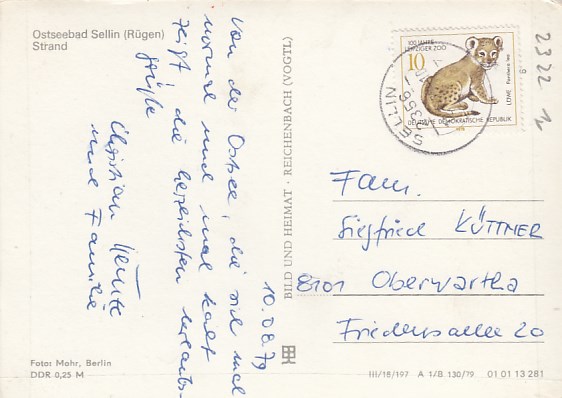 Ostseebad Sellin (Rügen)
Strand
Von der Ostsee, die sich mal
normal und mal kalt
zeigt, die herzlichsten Urlaubs-
grüße
Christian
und Familie
10.08.79
BILD UND HEIMAT · REICHENBACH (VOGTL)
100 JAHRE
LEIPZIGER ZOO
10
LÖWE Panthera leo
DEUTSCHE DEMOKRATISCHE REPUBLIK
1978
SELLIN
2356
2322
Fam.
Siegfried KÜTTNER
8101 Oberwartha
Friedensallee 20
Foto: Mohr, Berlin
DDR 0,25 M
III/18/197 A 1/B 130/79 01 01 13 281